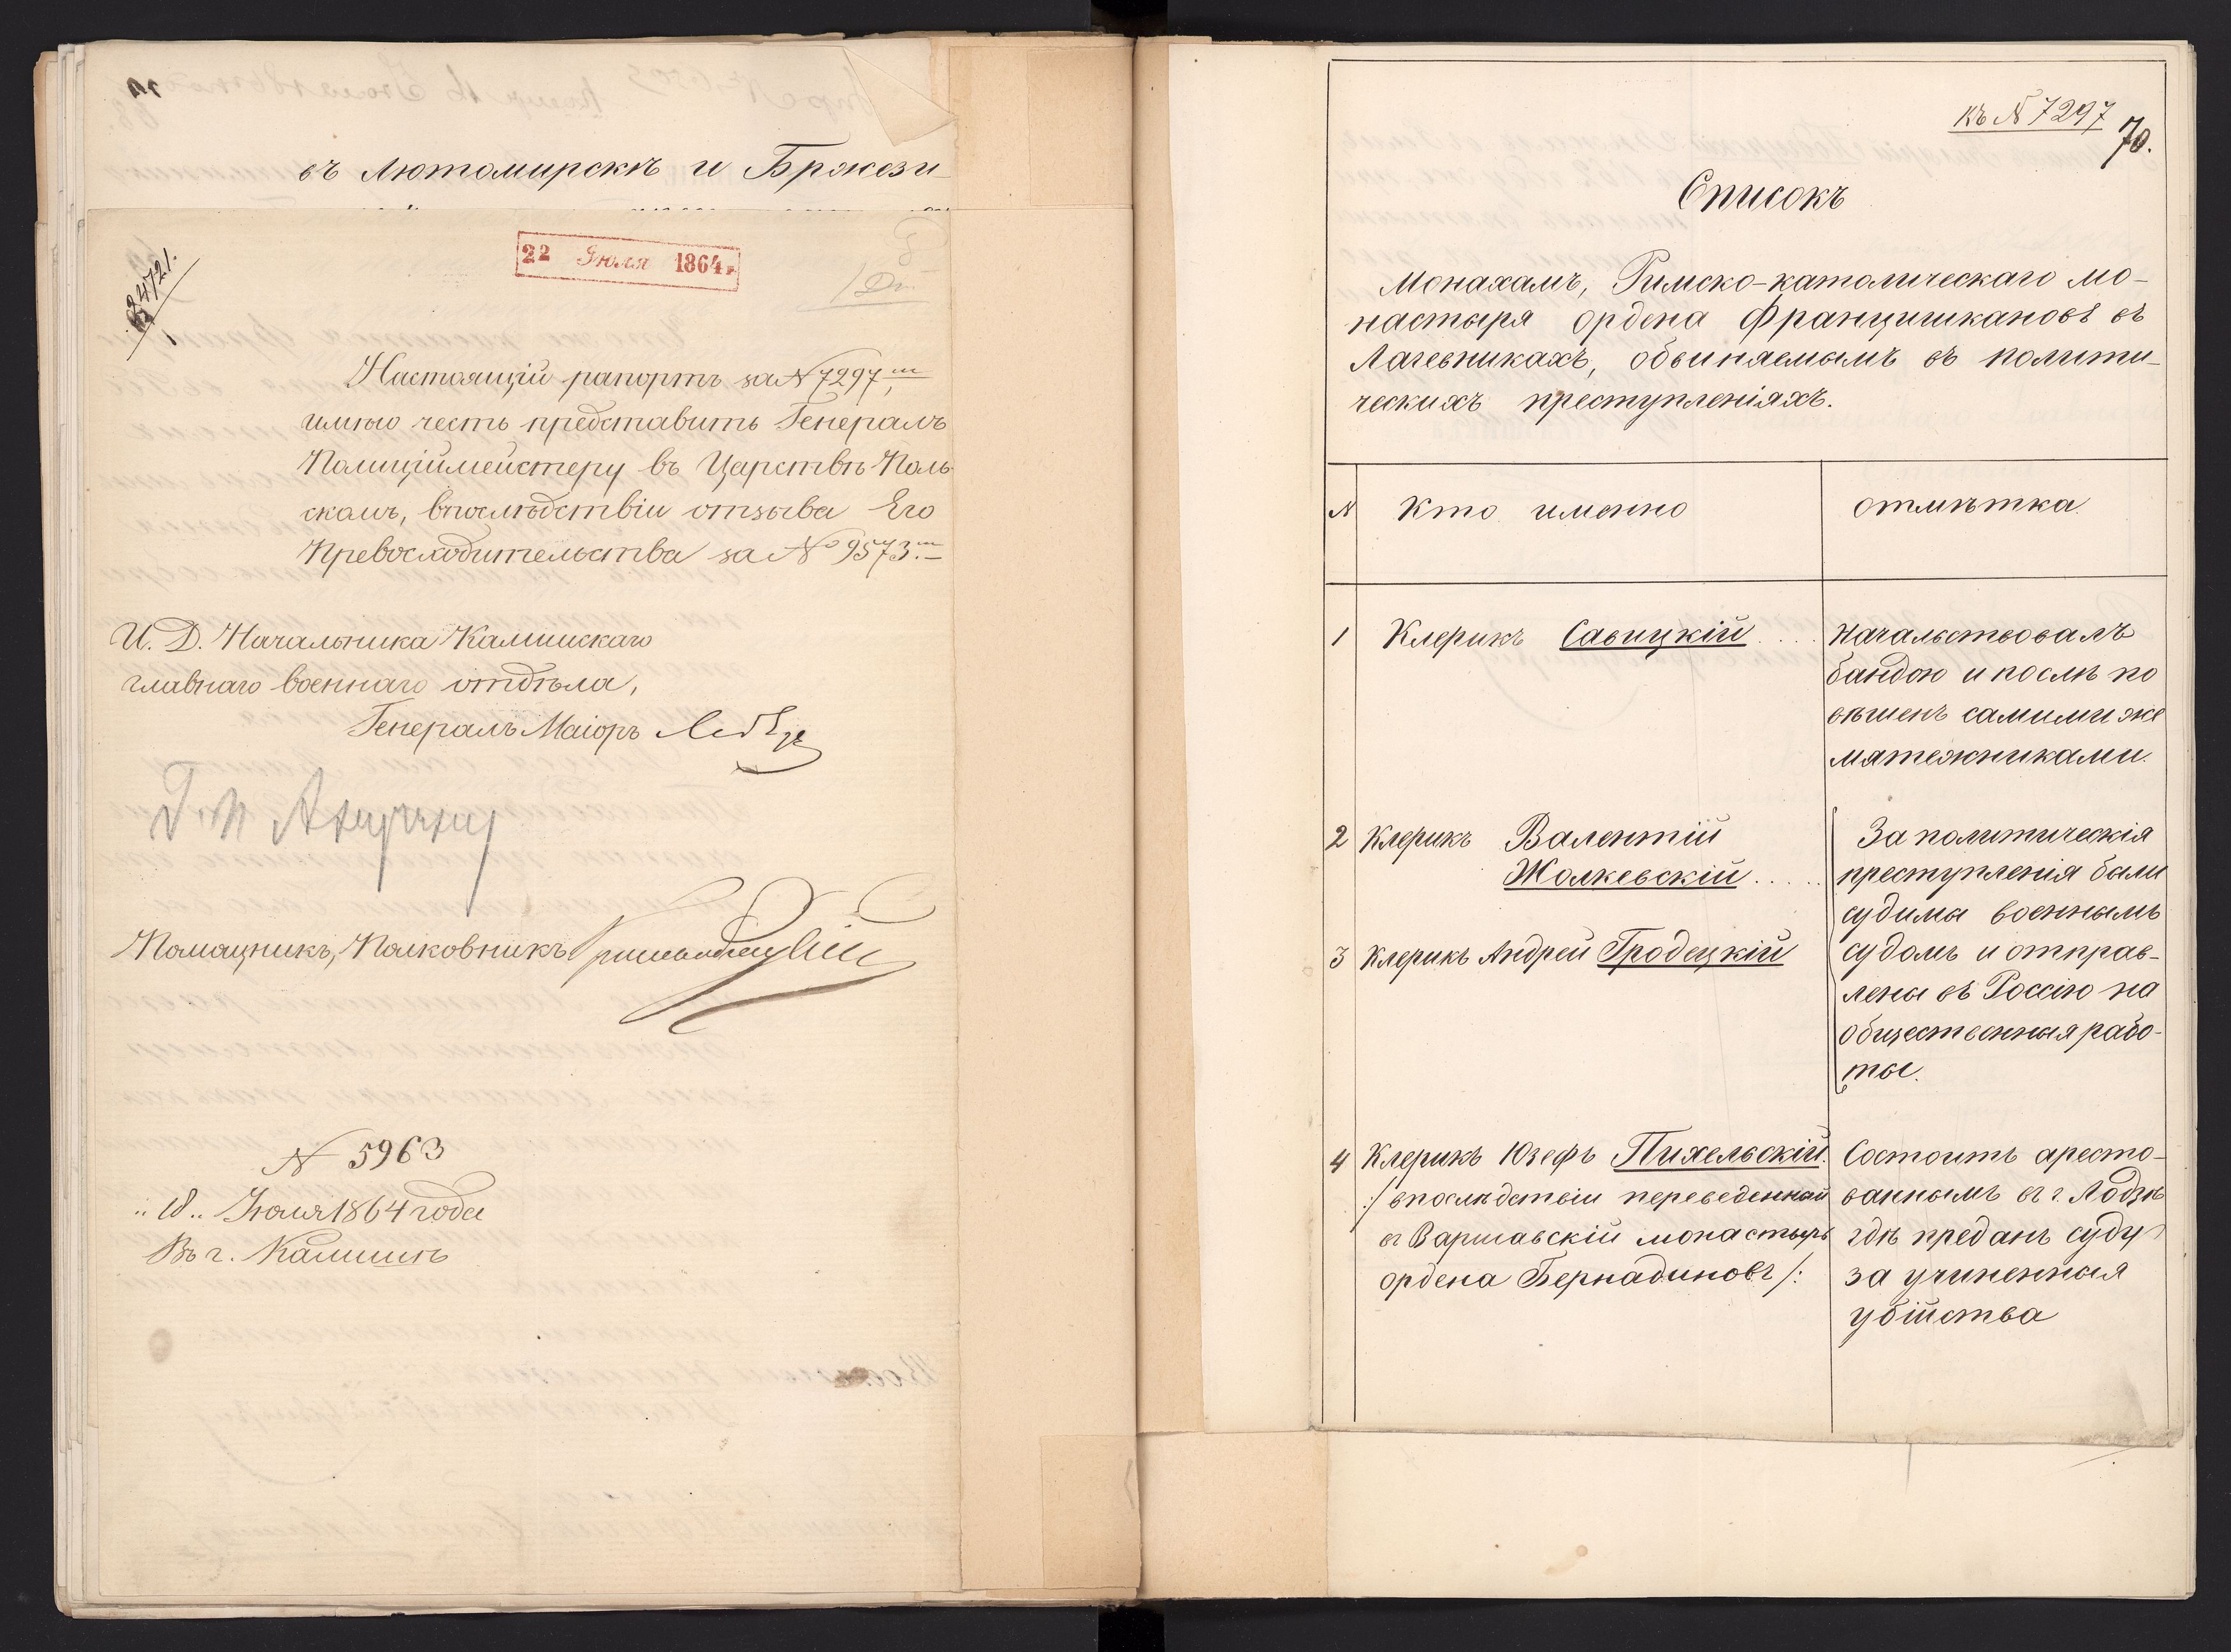 въ Лютомирскѣ и Бржези-
22 Іюля 1864 г.
Настоящій рапортъ за № 7297,
имѣю честь представить Генералъ
Полиціймейстеру въ Царствѣ Поль-
скомъ, впослѣдствіи отзыва Его
Превосходительства за № 9573.
И. Д. Начальника Калишскаго
главнаго военнаго отдѣла,
Генералъ Маіоръ
Помощникъ, Полковникъ
№ 5963
„18„ Іюля 1864 года
Въ г. Калишѣ
къ № 7297
70.
Списокъ
Монахамъ, Римско-католическаго мо-
настыря ордена Францишкановъ въ
Лагевникахъ, обвиняемымъ въ полити-
ческихъ преступленіяхъ.
№ Кто именно отмѣтка
1 Клерикъ Савицкій .... Начальствовалъ
бандою и послѣ по
вѣшенъ самими же
мятежниками.
2 Клерикъ Валентій За политическія
Жолкевскій ..... преступленія были
судимы военнымъ
3 Клерикъ Андрей Гродецкій судомъ и отправ-
лены въ Россію на
общественныя рабо-
ты.
4 Клерикъ Юзефъ Пихельскій. Состоитъ аресто-
:/ впослѣдствіи переведенный ваннымъ въ г. Лодзѣ
въ Варшавскій монастырь гдѣ преданъ суду
ордена Бернадиновъ /: за учиненныя
убійства